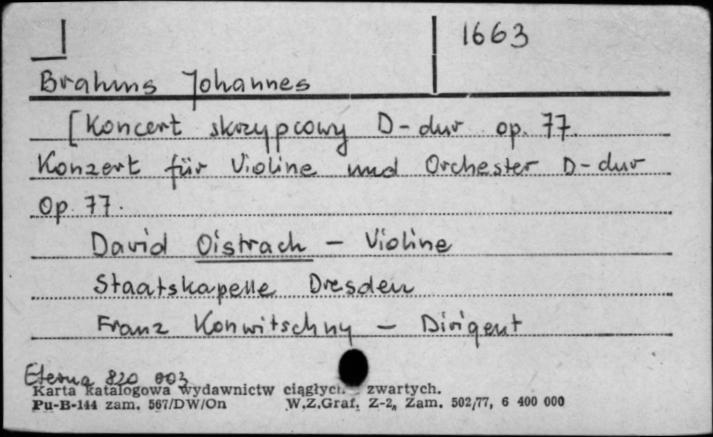 1663
Brahms Johannes
[Koncert skrzypcowy D-dur op. 77.
Konzert für Violine und Orchester D-dur
op. 77.
David Oistrach - Violine
Staatskapelle Dresden
Franz Konwitschny - Dirigent
Eterna 820 003
Karta katalogowa wydawnictw ciągłych zwartych.
Pu-B-144 zam. 567/DW/On W.Z.Graf. Z-2, Zam. 502/77, 6 400 000